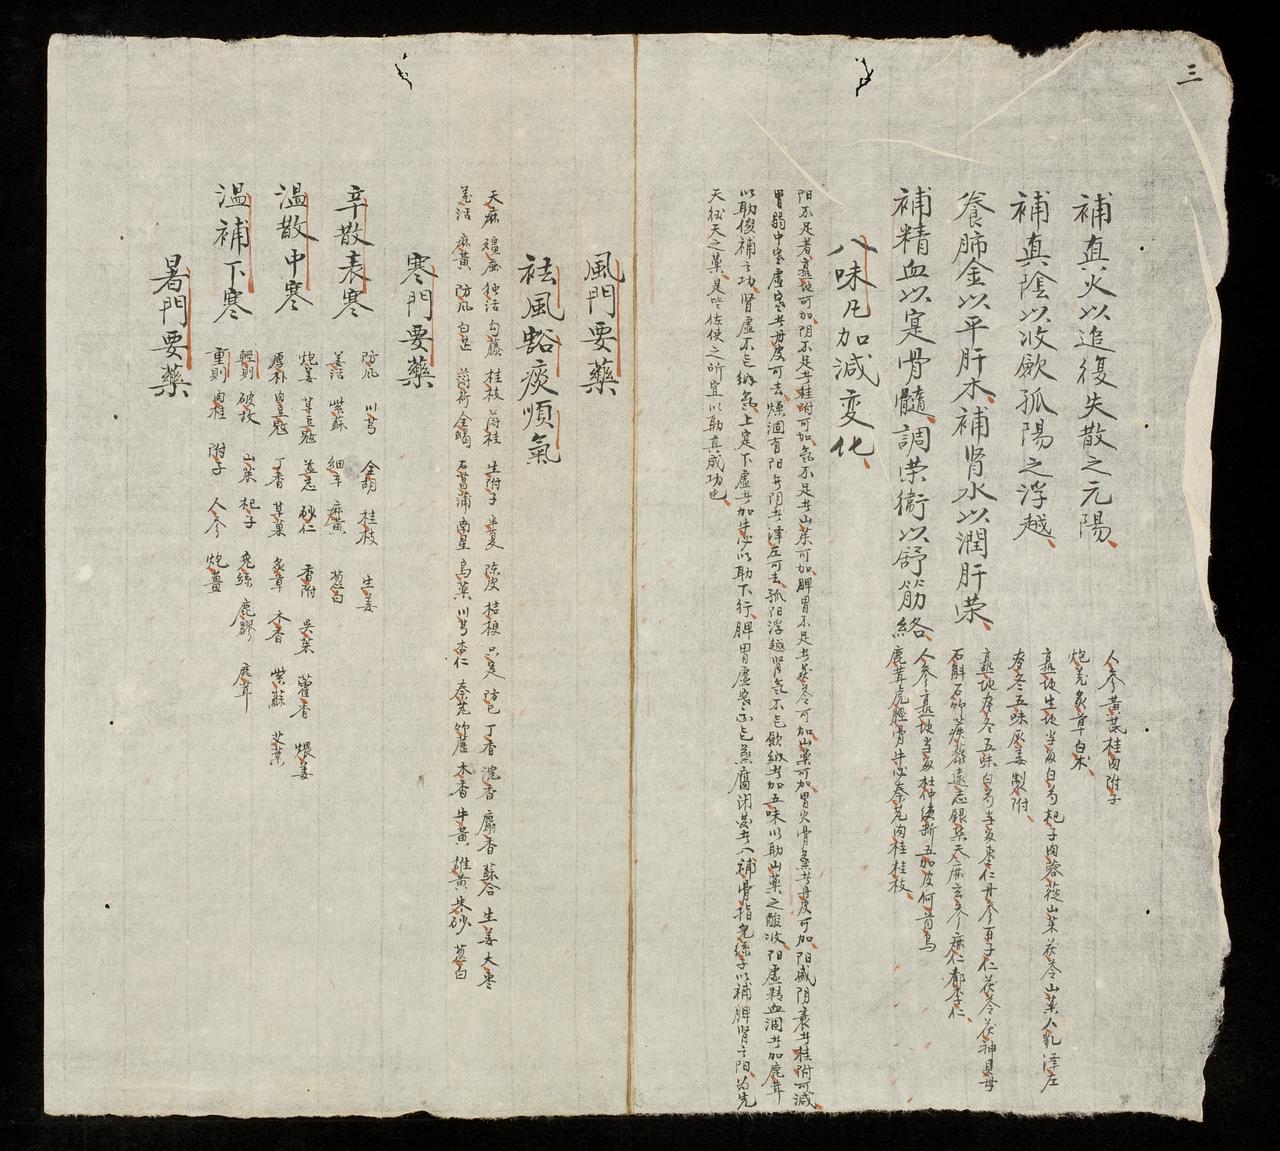 三
補真火以追復失散之元陽、
人參黃芪桂肉附子
炮羌炙草白朮、
補真陰以收厥孤陽之浮越、
熟地生地当归白芍杞子肉蓉蓯山茱茯苓山藥人乳澤左
麥冬五味灰姜製附、
養肺金以平肝木、補肾水以潤肝荣、
熟地麥冬五味白芍当归枣仁丹參百子仁茯苓茯神貝母
石斛石郎蒺藜遠志銀柴天麻玄參麻仁郁李仁、
補精血以寔骨髓、調荣衛以舒筋絡、
人參熟地当归杜仲續断五加皮何首烏
鹿茸虎脛骨牛必秦艽肉桂桂枝、
八味凡加減变化、
阳不足者熟地可加、阴不足者桂附可加、氣不足者山茱可加、脾胃不足者茯苓可加、山藥可加、胃火骨蒸者丹皮可加、阳盛阴衰者桂附可減
胃弱中寒虛寒者丹皮可去、燥涸有阳無阴者澤左可去、孤阳浮越肾氣不能飲納者加五味以助山藥之酸收、阳虛精血涸者加鹿茸
以助俊補之功、肾虛不能納氣、上寔下虛者加牛必以助下行、脾胃虛寒不能蒸腐閉滎者入補骨指兔絲子以補脾肾之阳為先
天後天之藥、是皆佐使之所宜以助真成功也、
風門要藥
祛風豁痰順氣
天麻 殭蚕 独活 勾藤 桂枝 薄桂 生附子 半夏 陳皮 桔梗 只寔 防已 丁香 沉香 麝香 蘇合 生姜 大枣
羌活 麻黃 防風 白芷 薄荷 全蝎 石菖蒲 南星 烏藥 川芎 杏仁 秦艽 竹瀝 木香 牛黃 雄黃 朱砂 葱白
寒門要藥
辛散表寒
防風 川芎 全胡 桂枝 生姜
羌活 紫蘇 細辛 麻黃 葱白
溫散中寒
炮姜 草豆寇 益志 砂仁 香附 吳茱 藿香 煨姜
厚朴 肉豆寇 丁香 草菓 炙草 木香 紫蘇 艾葉
溫補下寒
輕則 破故 山茱 杞子 兔絲 鹿膠 鹿茸
重則 肉桂 附子 人參 炮薑
暑門要藥